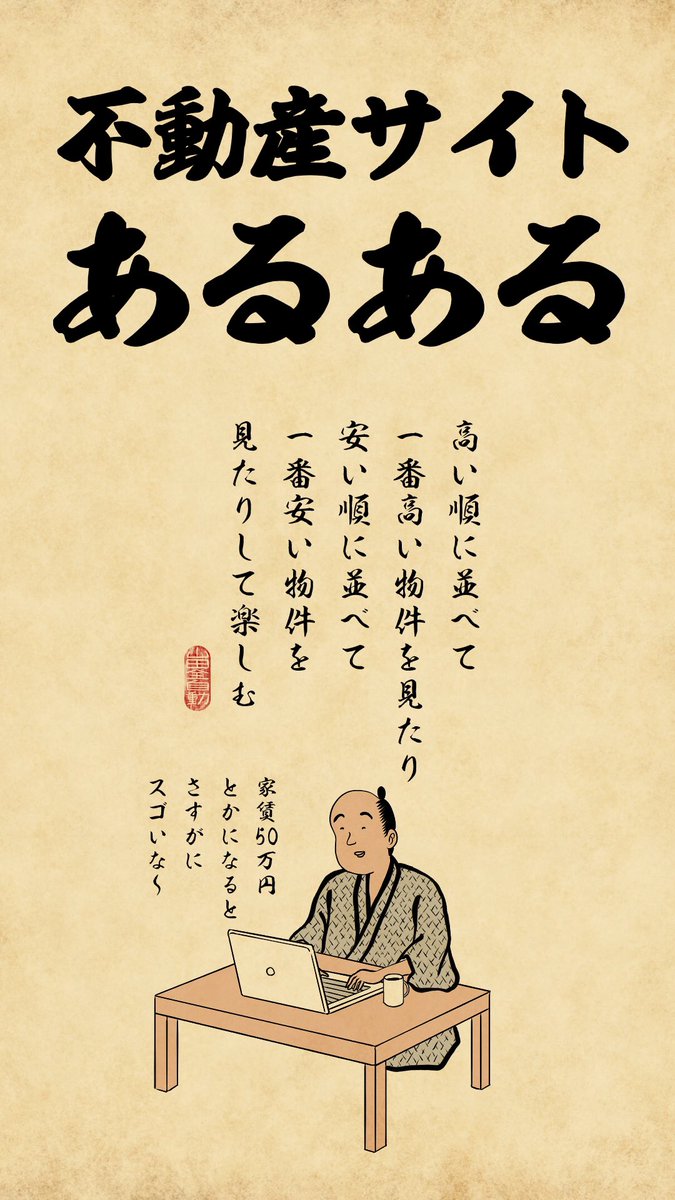 不動産サイト
あるある
高い順に並べて
一番高い物件を見たり
安い順に並べて
一番安い物件を
見たりして楽しむ
家賃50万円
とかになると
さすがに
スゴいな～